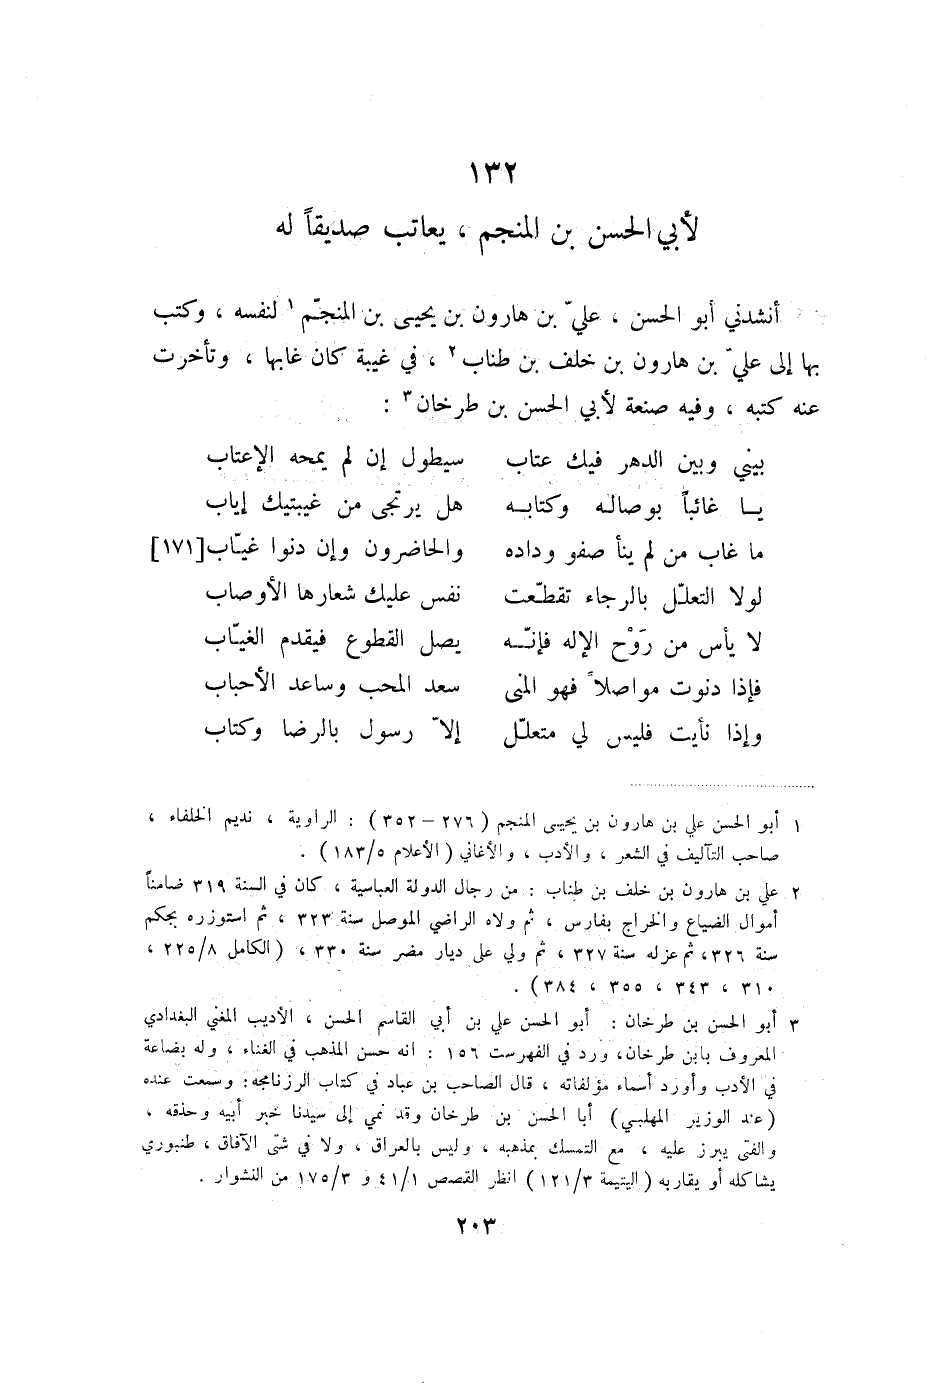 ١٣٢
لأبي الحسن بن المنجم ، يعاتب صديقاً له
أنشدني أبو الحسن ، عليّ بن هارون بن يحيى بن المنجّم ١ لنفسه ، وكتب
بها إلى عليّ بن هارون بن خلف بن طناب ٢ ، في غيبة كان غابها ، وتأخرت
عنه كتبه ، وفيه صنعة لأبي الحسن بن طرخان ٣ :
بيني وبين الدهر فيك عتاب سيطول إن لم يمحه الإعتاب
يا غائباً بوصاله وكتابه هل يرتجى من غيبتيك إياب
ما غاب من لم ينأ صفو وداده والحاضرون وإن دنوا غيّاب [١٧١]
لولا التعلّل بالرجاء تقطّعت نفس عليك شعارها الأوصاب
لا يأس من رَوْح الإله فإنّه يصل القطوع فيقدم الغيّاب
فإذا دنوت مواصلاً فهو المنى سعد المحب وساعد الأحباب
وإذا نأيت فليس لي متعلّل إلاّ رسول بالرضا وكتاب
١ أبو الحسن علي بن هارون بن يحيى المنجم ( ٢٧٦ – ٣٥٢ ) : الراوية ، نديم الخلفاء ،
صاحب التآليف في الشعر ، والأدب ، والأغاني ( الأعلام ١٨٣/٥ ) .
٢ علي بن هارون بن خلف بن طناب : من رجال الدولة العباسية ، كان في السنة ٣١٩ ضامناً
أموال الضياع والخراج بفارس ، ثم ولاه الراضي الموصل سنة ٣٢٣ ، ثم استوزره بجكم
سنة ٣٢٦، ثم عزله سنة ٣٢٧ ، ثم ولي على ديار مضر سنة ٣٣٠ ، (الكامل ٢٢٥/٨ ،
٣١٠ ، ٣٤٣ ، ٣٥٥ ، ٣٨٤) .
٣ أبو الحسن بن طرخان : أبو الحسن علي بن أبي القاسم الحسن ، الأديب المغني البغدادي
المعروف بابن طرخان، ورد في الفهرست ١٥٦ : انه حسن المذهب في الغناء ، وله بضاعة
في الأدب وأورد أسماء مؤلفاته ، قال الصاحب بن عباد في كتاب الرزنامجه: وسمعت عنده
(عند الوزير المهلبي) أبا الحسن بن طرخان وقد نمي إلى سيدنا خبر أبيه وحذقه ،
والفتى يبرز عليه ، مع التمسك بمذهبه ، وليس بالعراق ، ولا في شتى الآفاق ، طنبوري
يشاكله أو يقاربه ( اليتيمة ١٢١/٣ ) انظر القصص ٤١/١ و ١٧٥/٣ من النشوار .
٢٠٣